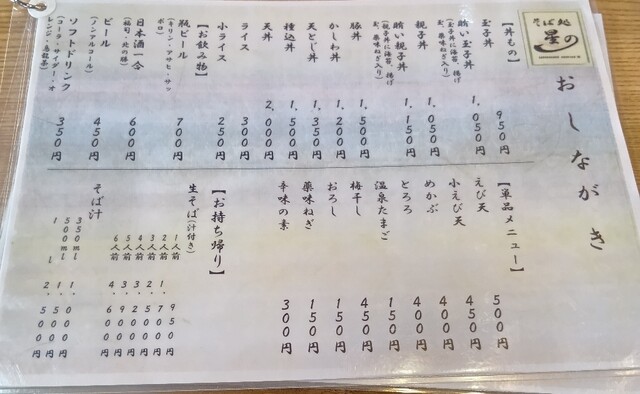 そば処
星の
おしながき
【丼もの】
玉子丼 950円
賄い玉子丼 1,050円
(玉子丼に海苔、揚げ玉、薬味ねぎ入り)
親子丼 1,050円
賄い親子丼 1,150円
(親子丼に海苔、揚げ玉、薬味ねぎ入り)
豚丼 1,150円
かしわ丼 1,200円
天とじ丼 1,350円
種込丼 1,500円
天丼 2,000円
ライス 300円
小ライス 250円
【お飲み物】
瓶ビール 700円
(キリン・アサヒ・サッポロ)
日本酒一合 600円
ビール 450円
(ノンアルコール)
ソフトドリンク 350円
(コーラ・サイダー・オレンジ・烏龍茶)
【単品メニュー】
えび天 500円
小えび天 450円
めかぶ 400円
とろろ 450円
温泉たまご 150円
梅干し 150円
おろし 150円
薬味ねぎ 150円
辛味の素 300円
【お持ち帰り】
生そば(汁付き)
1人前 950円
2人前 1,700円
3人前
4人前
5人前 3,900円
6人前 4,600円
そば汁
350ml 1,000円
500ml 1,500円
1l 2,500円